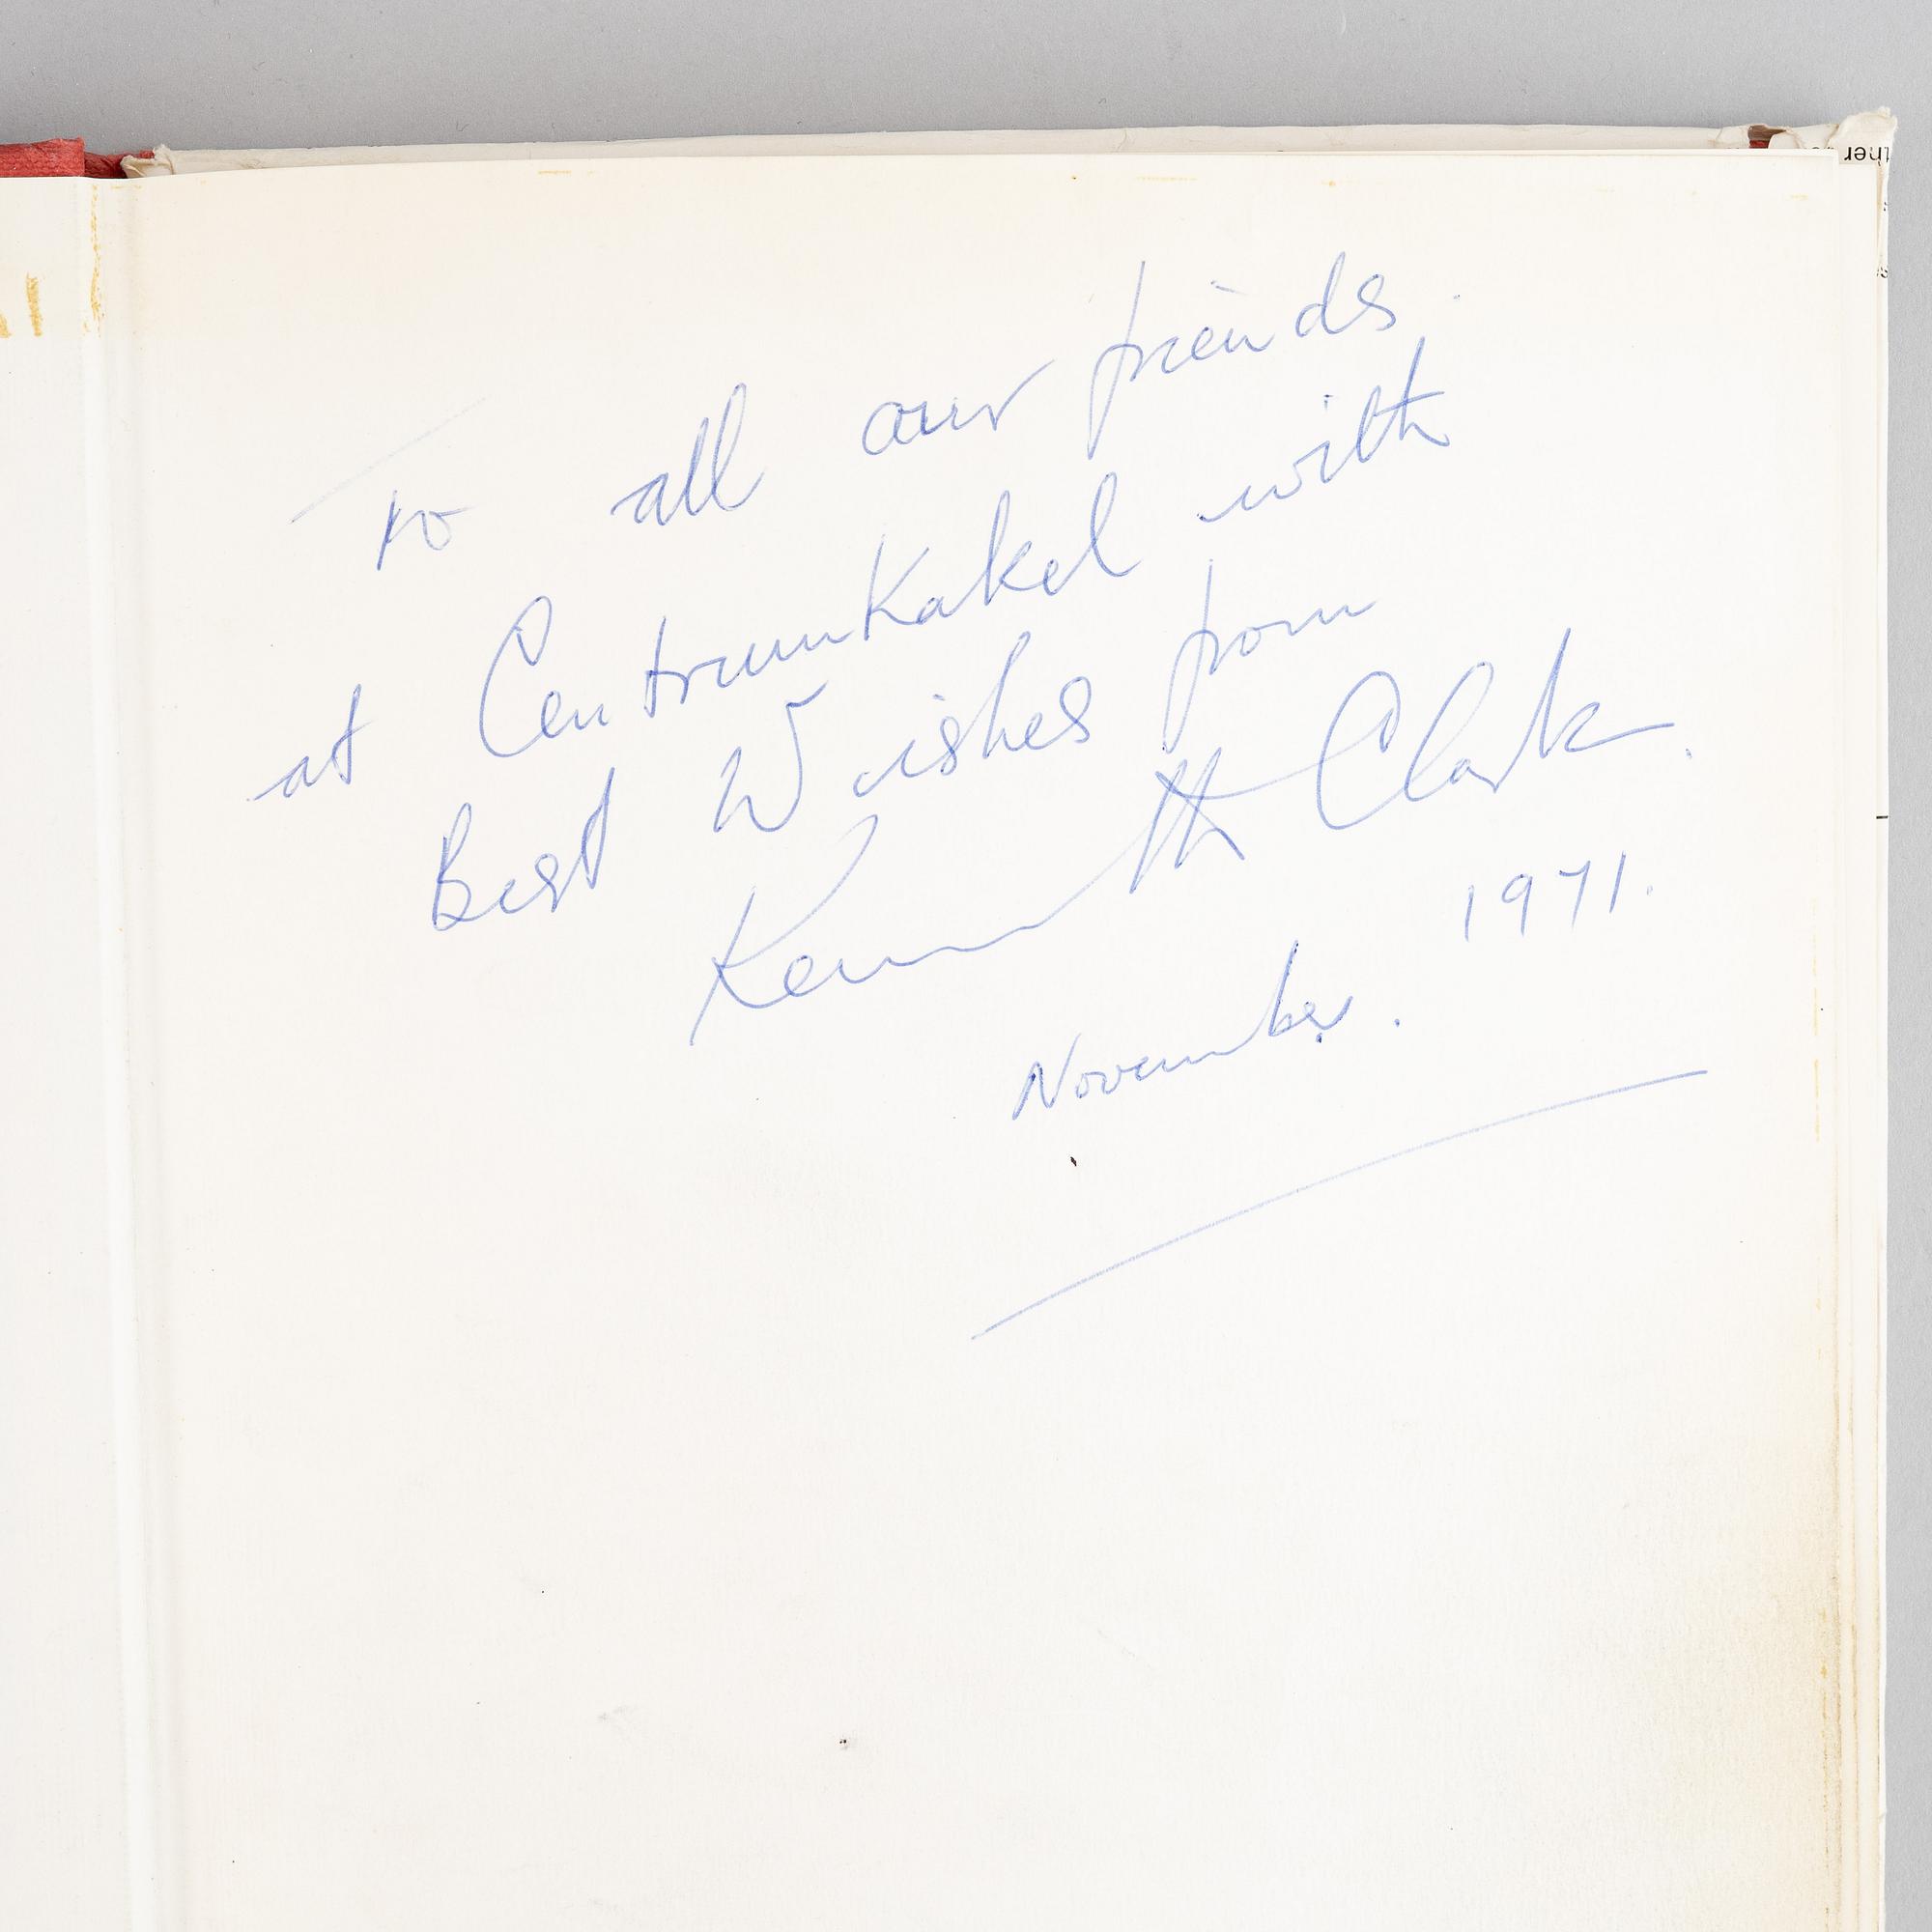 To all our friends.
at CentrumKakel with
Best Wishes from
Kenneth Clark.
November. 1971.
ther